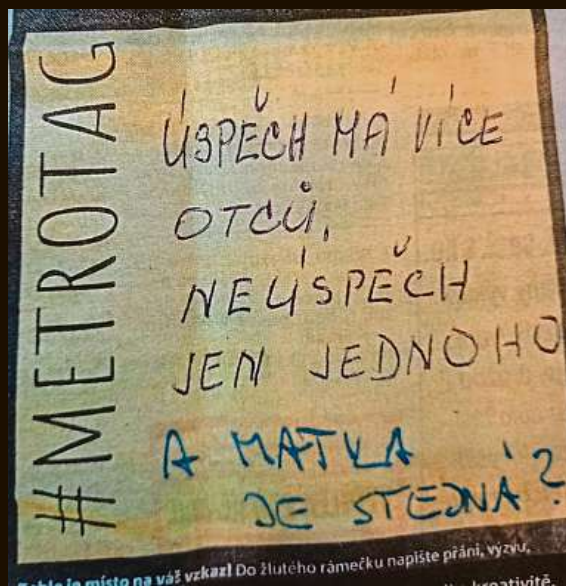 #METROTAG
ÚSPĚCH MÁ VÍCE
OTCŮ,
NEÚSPĚCH
JEN JEDNOHO
A MATKA
JE STEJNÁ?
je místo na váš vzkaz! Do žlutého rámečku napište přání, výzvu,
kreativitě.